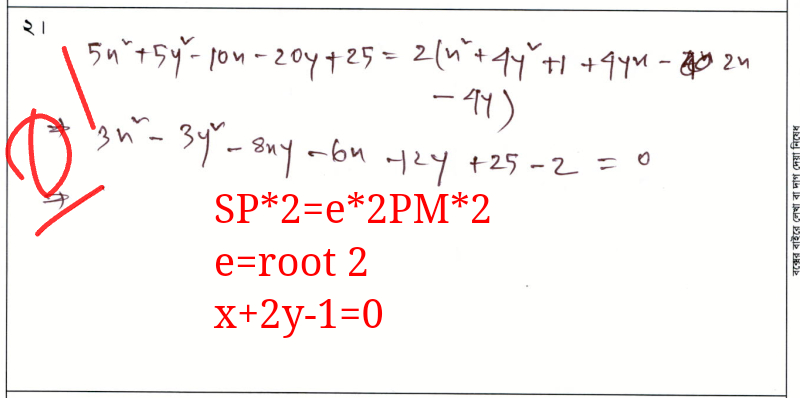 ২১
5x²+5y²-10x-20y+25 = 2(x²+4y²+1 +4yx- 2x
- 4y)
⇒ 3x²-3y²-8xy-6x-12y+25-2 = 0
⇒
SP*2=e*2PM*2
e=root 2
x+2y-1=0
বক্সের বাইরে লেখা বা দাগ দেয়া নিষেধ